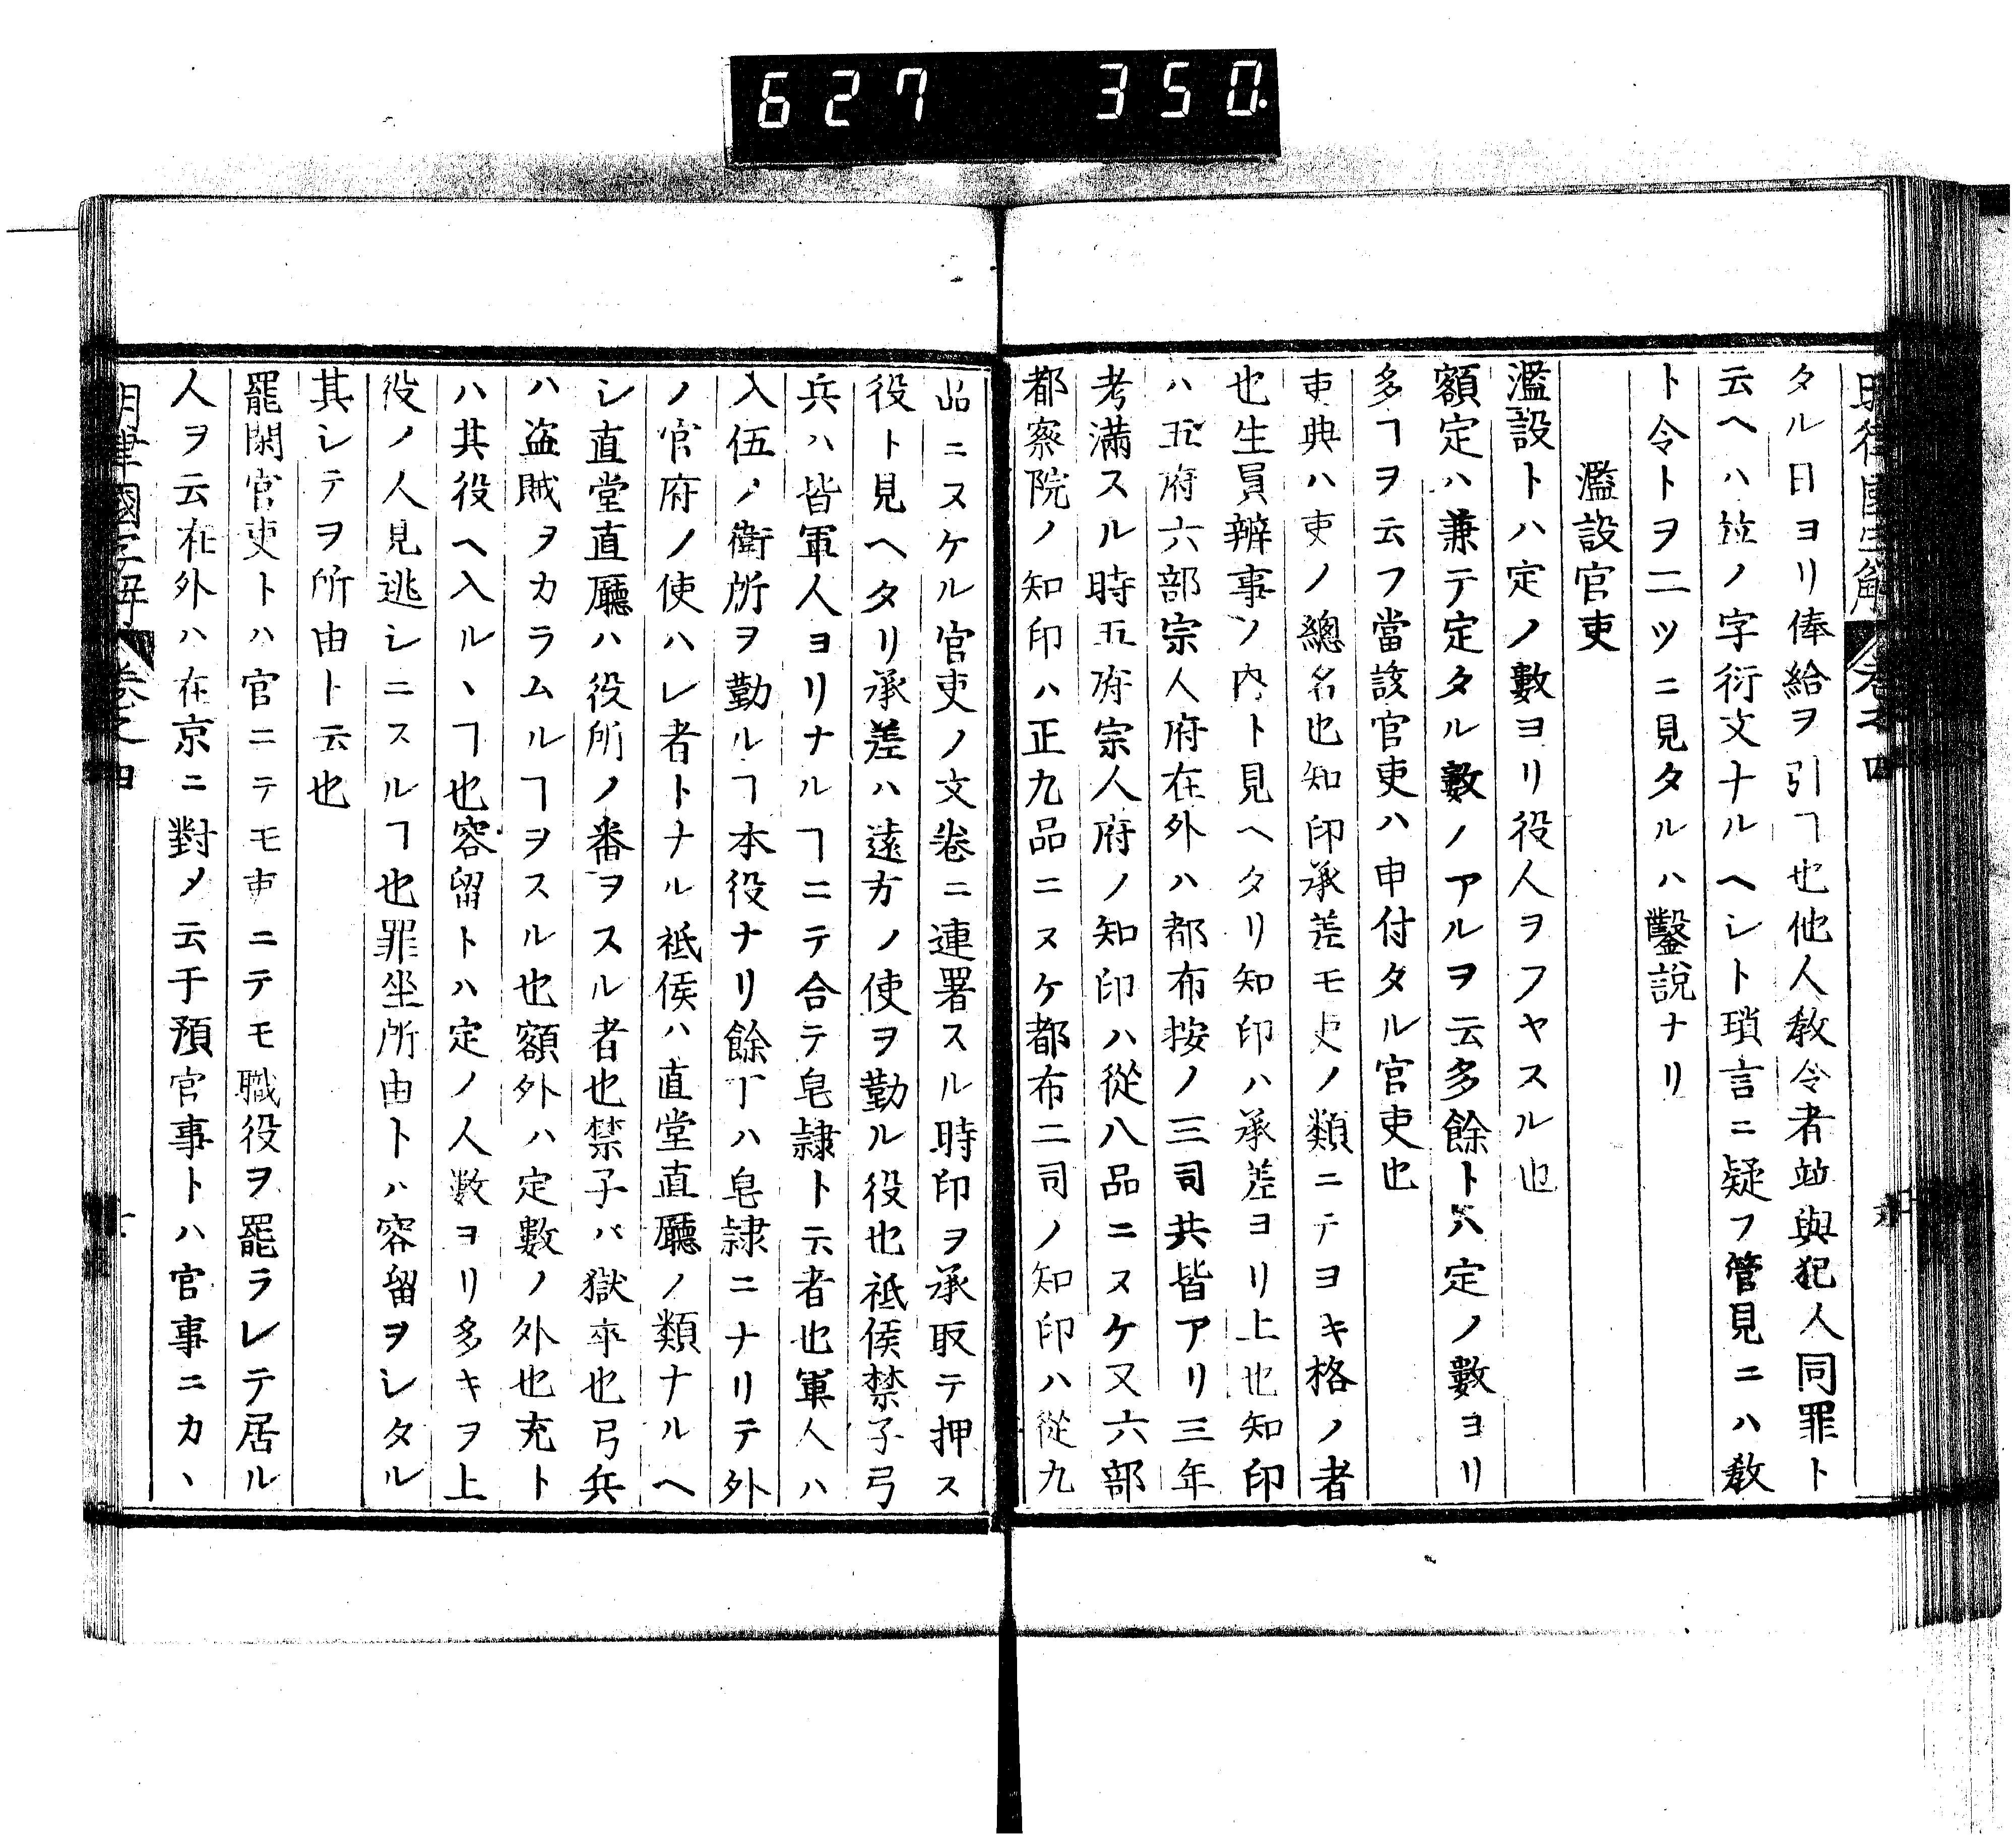 627 350.
明律國字解 卷之四
タル日ヨリ俸給ヲ引ヿ也他人教令者竝與犯人同罪ト
云ヘハ竝ノ字衍文ナルヘシト瑣言ニ疑フ管見ニハ教
ト令トヲ二ツニ見タルハ鑿說ナリ
濫設官吏
濫設トハ定ノ數ヨリ役人ヲフヤスル也
額定ハ兼テ定タル數ノアルヲ云多餘トハ定ノ數ヨリ
多ヿヲ云フ當該官吏ハ申付タル官吏也
吏典ハ吏ノ總名也知印承差モ吏ノ類ニテヨキ格ノ者
也生員辦事ソ内ト見ヘタリ知印ハ承差ヨリ上也知印
ハ五府六部宗人府在外ハ都布按ノ三司共皆アリ三年
考滿スル時五府宗人府ノ知印ハ從八品ニヌケ又六部
都察院ノ知印ハ正九品ニヌケ都布二司ノ知印ハ從九
品ニヌケル官吏ノ文卷ニ連署スル時印ヲ承取テ押ス
役ト見ヘタリ承差ハ遠方ノ使ヲ勤ル役也祗候禁子弓
兵ハ皆軍人ヨリナルヿニテ合テ皂隷ト云者也軍人ハ
入伍ノ衛所ヲ勤ルヿ本役ナリ餘丁ハ皂隷ニナリテ外
ノ官府ノ使ハレ者トナル祗候ハ直堂直廳ノ類ナルヘ
シ直堂直廳ハ役所ノ番ヲスル者也禁子ハ獄卒也弓兵
ハ盗賊ヲカラムルヿヲスル也額外ハ定數ノ外也充ト
ハ其役ヘ入ルヽヿ也容留トハ定ノ人數ヨリ多キヲ上
役ノ人見逃シニスルヿ也罪坐所由トハ容留ヲシタル
其シテヲ所由ト云也
罷閑官吏トハ官ニテモ吏ニテモ職役ヲ罷ラレテ居ル
人ヲ云在外ハ在京ニ對メ云干預官事トハ官事ニカヽ
明律國字解 卷之四